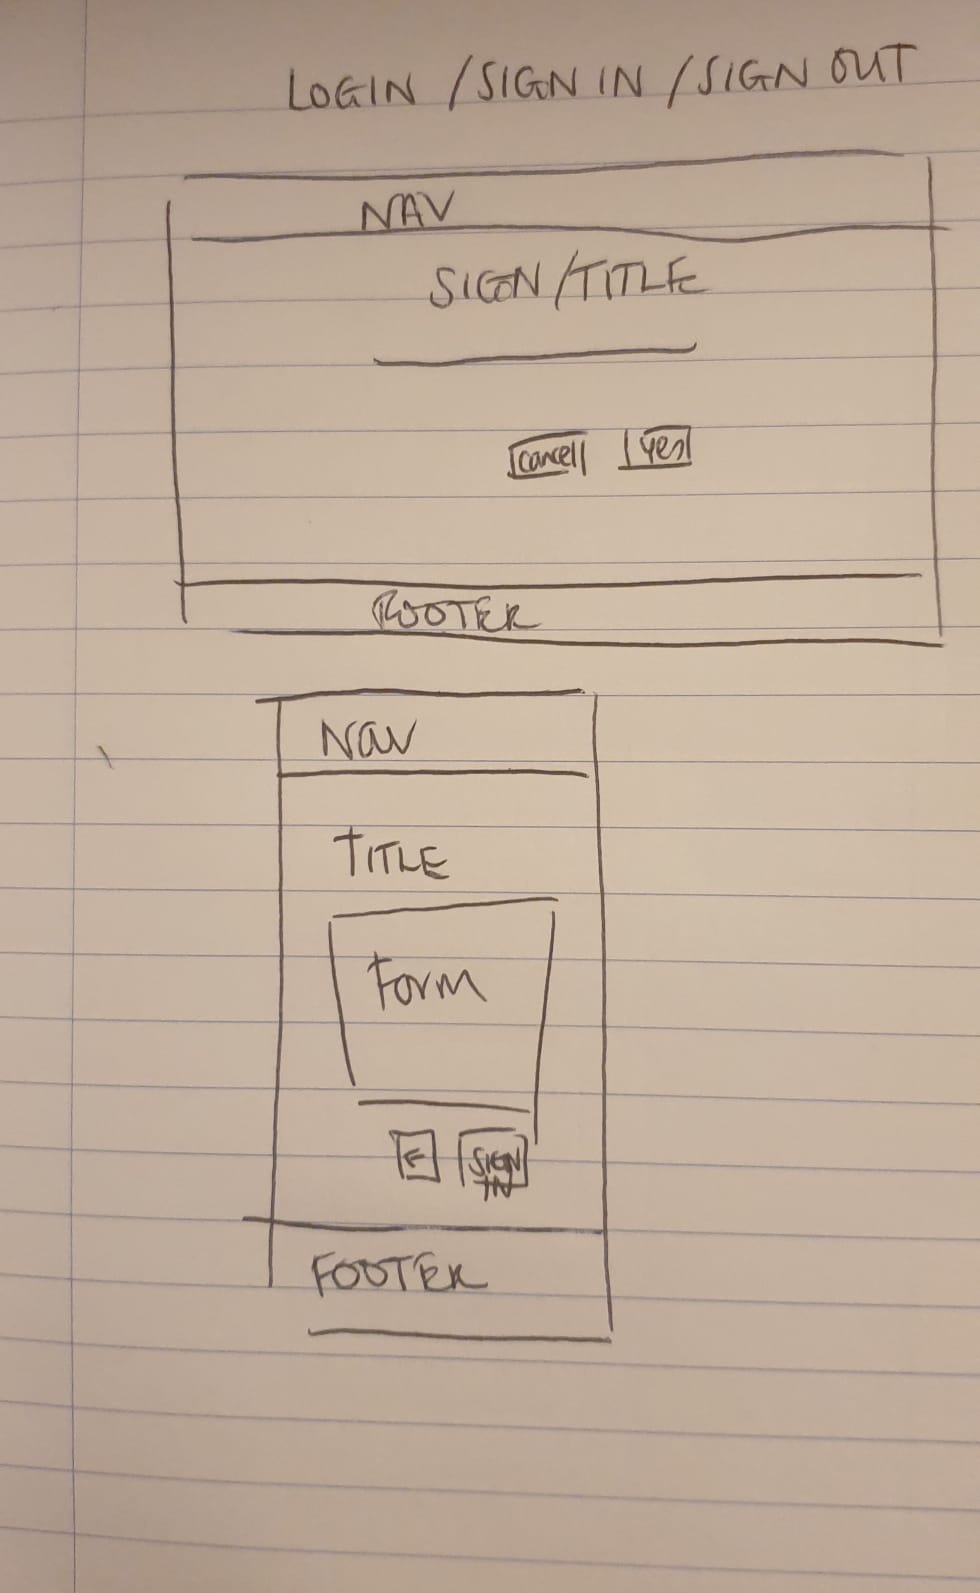 LOGIN / SIGN IN / SIGN OUT
NAV
SIGN/TITLE
cancel yes
FOOTER
NAV
TITLE
Form
← SIGN
IN
FOOTER